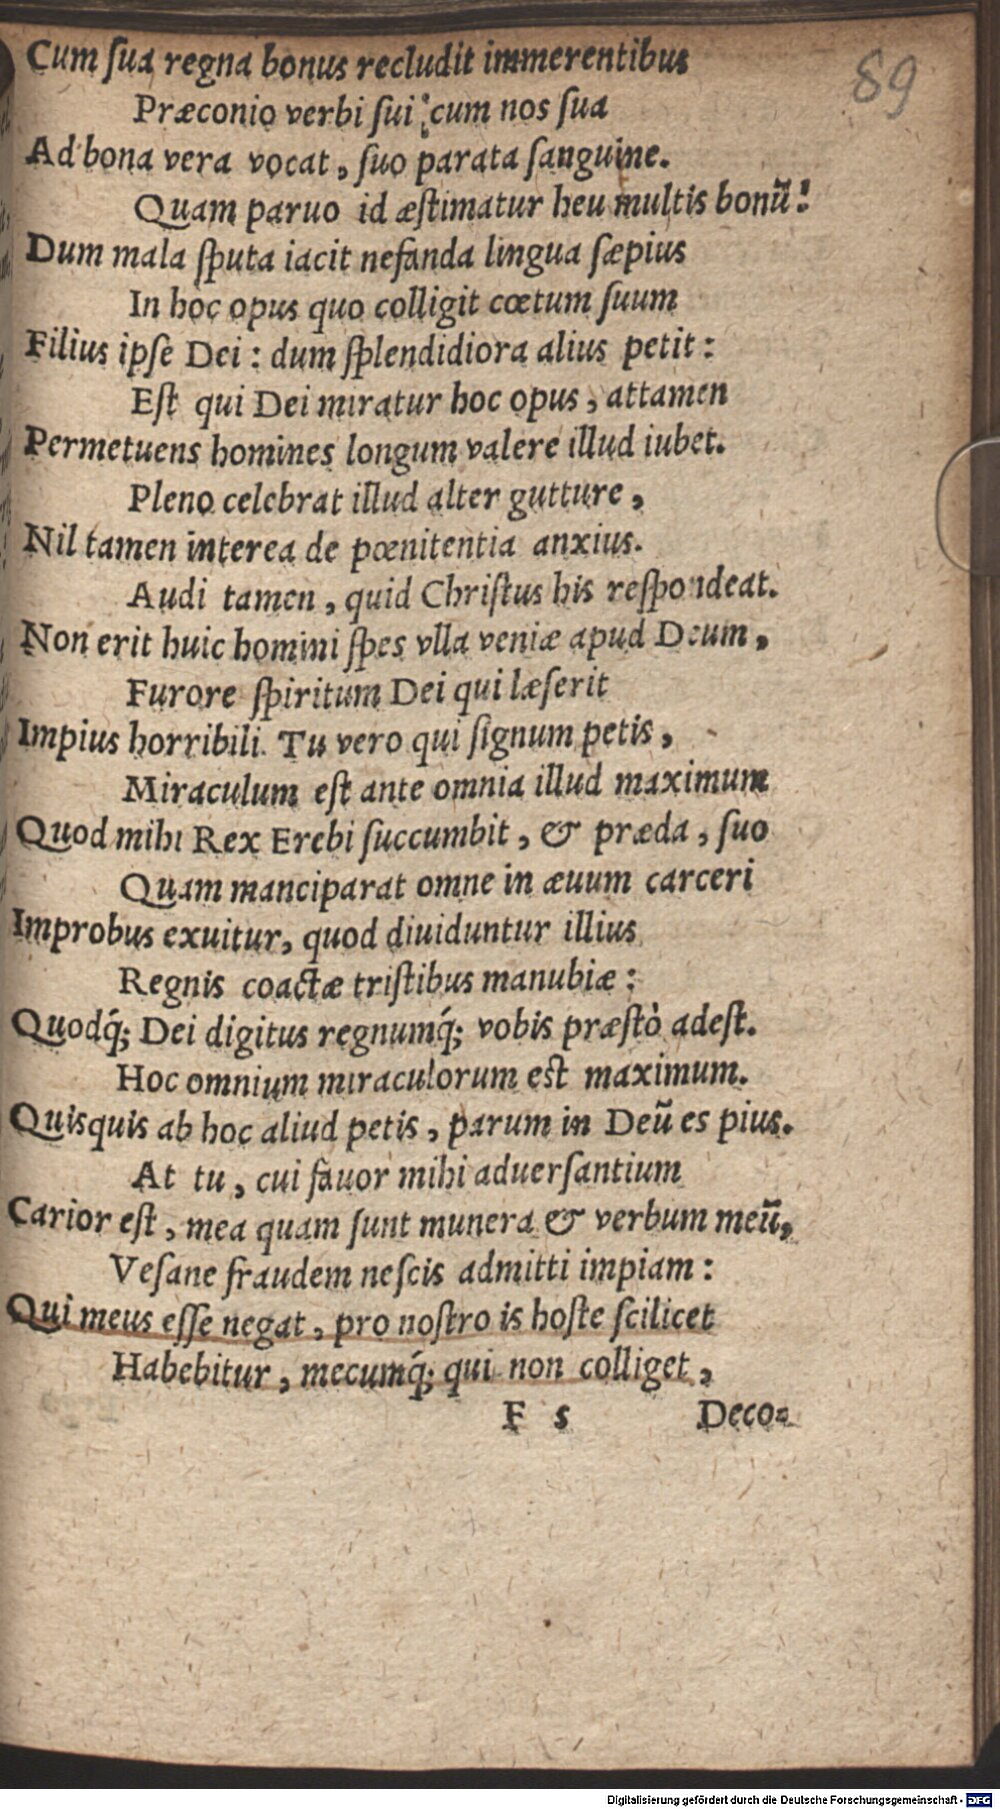 89
Cum ſua regna bonus recludit immerentibus
Præconio verbi ſui : cum nos ſua
Ad bona vera vocat, ſuo parata ſanguine.
Quam paruo id æſtimatur heu multis bonũ!
Dum mala ſputa iacit nefanda lingua ſæpius
In hoc opus quo colligit cœtum ſuum
Filius ipſe Dei : dum ſplendidiora alius petit :
Eſt qui Dei miratur hoc opus, attamen
Permetuens homines longum valere illud iubet.
Pleno celebrat illud alter gutture,
Nil tamen interea de pœnitentia anxius.
Audi tamen, quid Chriſtus his reſpondeat.
Non erit huic homini ſpes vlla veniæ apud Deum,
Furore ſpiritum Dei qui læſerit
Impius horribili. Tu vero qui ſignum petis,
Miraculum eſt ante omnia illud maximum
Quod mihi Rex Erebi ſuccumbit, & præda, ſuo
Quam manciparat omne in æuum carceri
Improbus exuitur, quod diuiduntur illius
Regnis coactæ triſtibus manubiæ :
Quodq́; Dei digitus regnumq́; vobis præſtò adeſt.
Hoc omnium miraculorum est maximum.
Quisquis ab hoc aliud petis, parum in Deũ es pius.
At tu, cui fauor mihi aduerſantium
Carior eſt, mea quam ſunt munera & verbum meũ,
Veſane fraudem neſcis admitti impiam :
Qui meus eſſe negat, pro noſtro is hoſte ſcilicet
Habebitur, mecumq́; qui non colliget,
F 5 Deco-
Digitalisierung gefördert durch die Deutsche Forschungsgemeinschaft - DFG